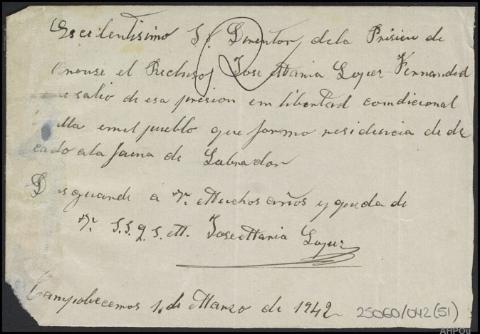 Escilentisimo Sr Director de la Prision de
Orense el Recluso Jose Maria Lopez Fernandez
salio de esa presion em libertad comdicional
em el pueblo que formo residencia de de
cado a la faina de Labrador
D s guarde a V. Muchos años y queda de
V. S.S.q.s.M. Jose Maria Lopez
Campobecerros 1, de Marzo de 1942
25060/042(51)
AHPOu